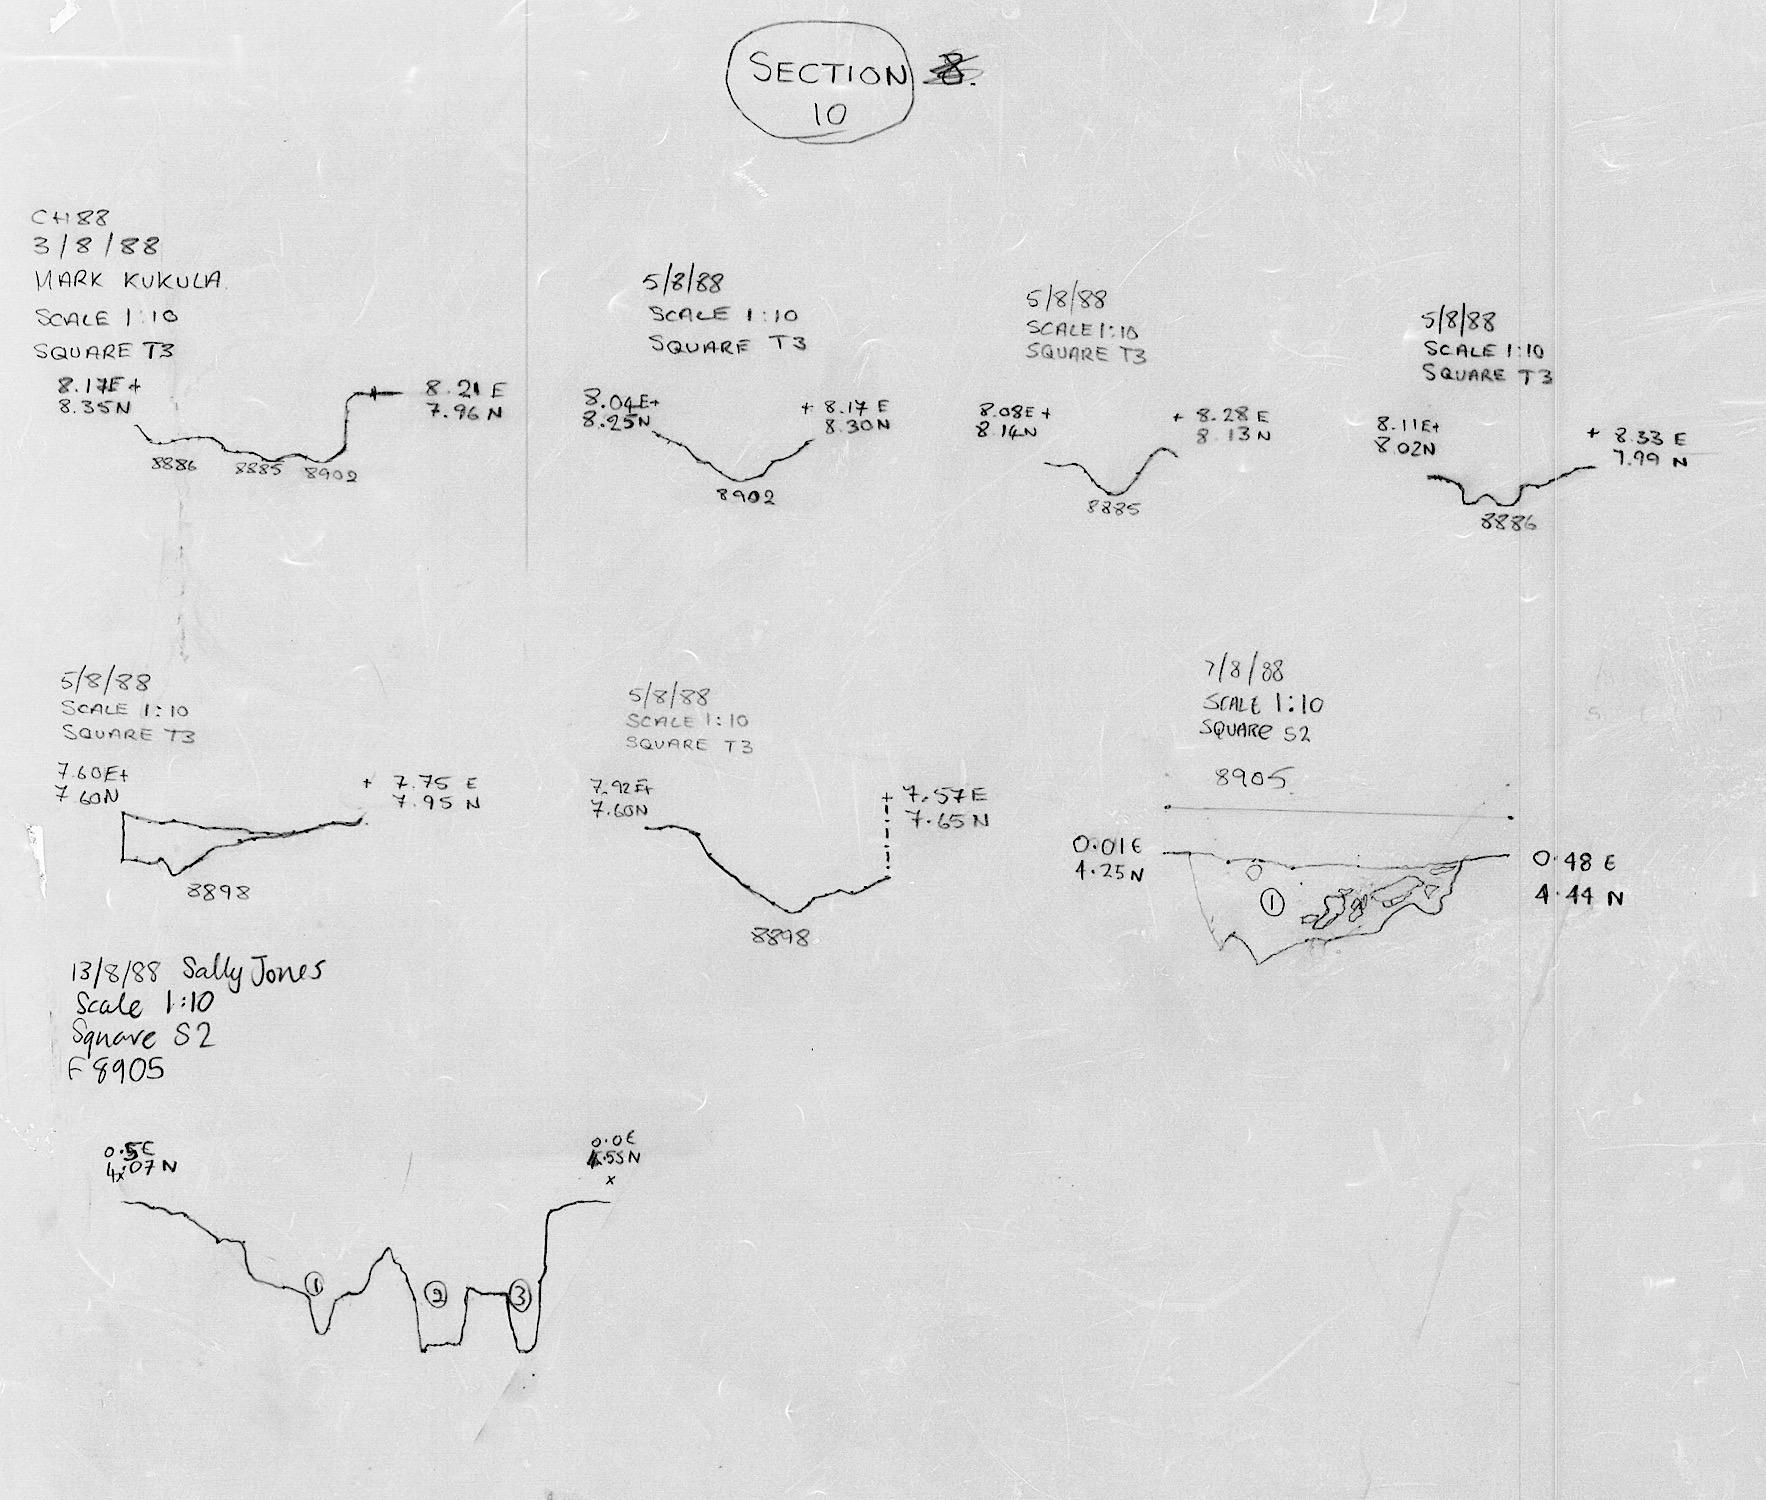 SECTION 8.
10
CH88
3/8/88
MARK KUKULA
SCALE 1:10
SQUARE T3
8.17E+
8.35N
8.21 E
7.96 N
8886 8885 8902
5/8/88
SCALE 1:10
SQUARE T3
8.04E+
8.25N
+ 8.17 E
8.30N
8902
5/8/88
SCALE 1:10
SQUARE T3
8.08E +
8.14N
+ 8.28 E
8.13 N
8885
5/8/88
SCALE 1:10
SQUARE T3
8.11E+
8.02N
+ 8.33 E
7.99 N
8886
5/8/88
SCALE 1:10
SQUARE T3
7.60E+
7.60N
+ 7.75 E
7.95 N
8898
5/8/88
SCALE 1:10
SQUARE T3
7.92E+
7.60N
+ 7.57E
7.65 N
8898
7/8/88
SCALE 1:10
SQUARE S2
8905
0.01E
4.25N
0.48 E
4.44 N
1
13/8/88 Sally Jones
Scale 1:10
Square S2
F8905
0.5E
4.07 N
x
0.0E
4.55N
x
1 2 3